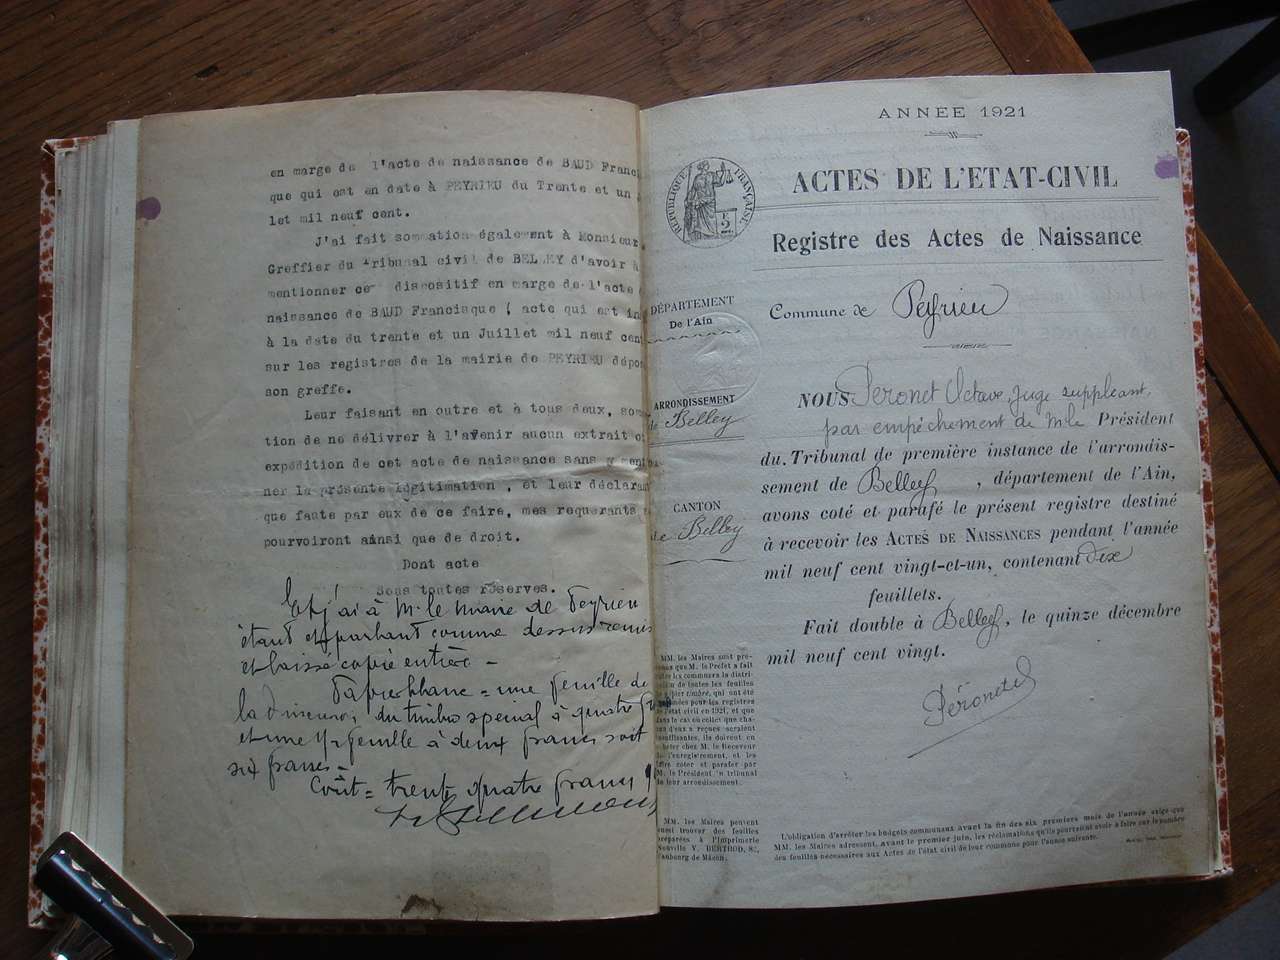 en marge de l'acte de naissance de BAUD Franc
que qui est en date à PEYRIEU du Trente et un
let mil neuf cent.
J'ai fait sommation également à Monsieur
Greffier du Tribunal civil de BELLEY d'avoir à
mentionner ce dispositif en marge de l'acte
naissance de BAUD Francisque ( acte qui est in
à la date du trente et un Juillet mil neuf cent
sur les registres de la mairie de PEYRIEU dépo
son greffe.
Leur faisant en outre et à tous deux, som
tion de ne délivrer à l'avenir aucun extrait o
expédition de cet acte de naissance sans y ment
ner la présente légitimation , et leur déclara
que faute par eux de ce faire, mes requérants
pourvoiront ainsi que de droit.
Dont acte
Sous toutes réserves.
Et j'ai à M. le Maire de Peyrieu
étant et parlant comme dessus remis
et laissé copie entière -
Papier blanc = une feuille de
la dimension du timbre spécial à quatre
et une feuille à deux francs soit
six francs -
Coût = trente quatre francs
ANNEE 1921
ACTES DE L'ETAT-CIVIL
Registre des Actes de Naissance
RÉPUBLIQUE FRANÇAISE
2
DÉPARTEMENT
De l'Ain
ARRONDISSEMENT
de Belley
CANTON
de Belley
Commune de Peyrieu
NOUS Peronet Octave, Juge suppléant
par empêchement de M. le Président
du Tribunal de première instance de l'arrondis-
sement de Belley , département de l'Ain,
avons coté et parafé le présent registre destiné
à recevoir les ACTES DE NAISSANCES pendant l'année
mil neuf cent vingt-et-un, contenant dix
feuillets.
Fait double à Belley, le quinze décembre
mil neuf cent vingt.
Péronet
MM. les Maires sont pré-
venus que M. le Préfet a fait
aux communes la distri-
de toutes les feuilles
papier timbré, qui ont été
pour les registres
l'état civil en 1921, et que
dans le cas où celles que cha-
d'eux a reçues seraient
insuffisantes, ils doivent en
acheter chez M. le Receveur
l'enregistrement, et les
faire coter et parafer par
M. le Président du tribunal
de leur arrondissement.
MM. les Maires peuvent
aussi trouver des feuilles
préparées à l'Imprimerie
Nouvelle V. BERTHOD, 8,
faubourg de Mâcon.
L'obligation d'arrêter les budgets communaux avant la fin des six premiers mois de l'année exige que
MM. les Maires adressent, avant le premier juin, les réclamations qu'ils pourraient avoir à faire sur le nombre
des feuilles nécessaires aux Actes de l'état civil de leur commune pour l'année suivante.